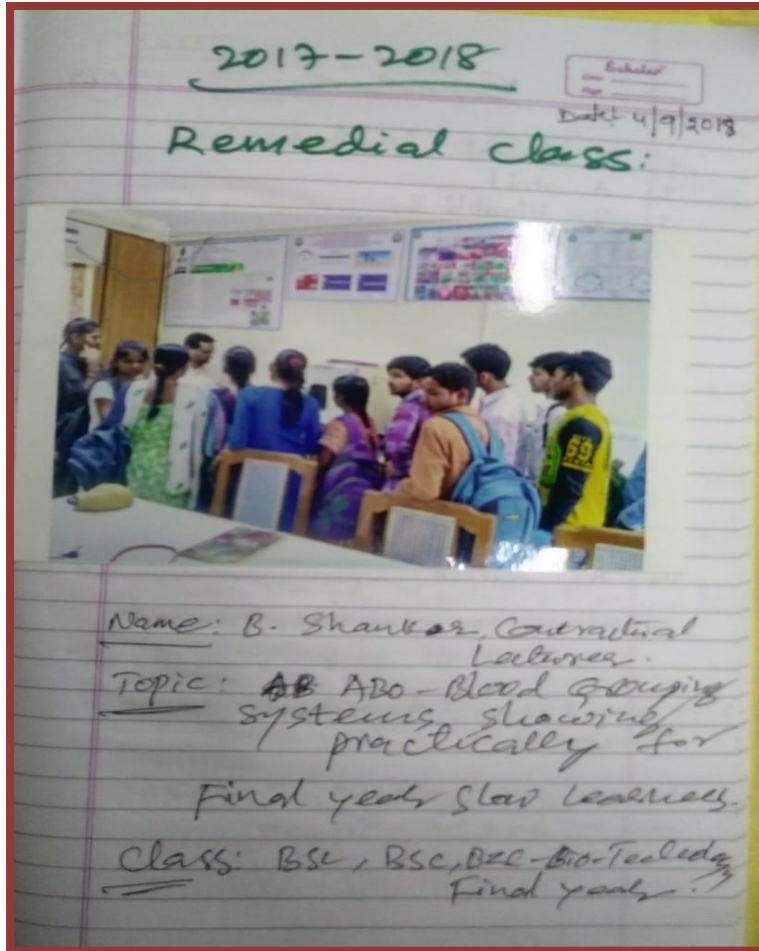 2017-2018
Scholar
Date
Page
Date: 4/9/2018
Remedial class:
69
Name: B. Shankar, Contractual
Lecturer.
Topic: ABO-Blood Grouping
systems showing
practically for
Final year slow learners.
Class: BSC, BSC, BZC-Bio-Technology
Final year.